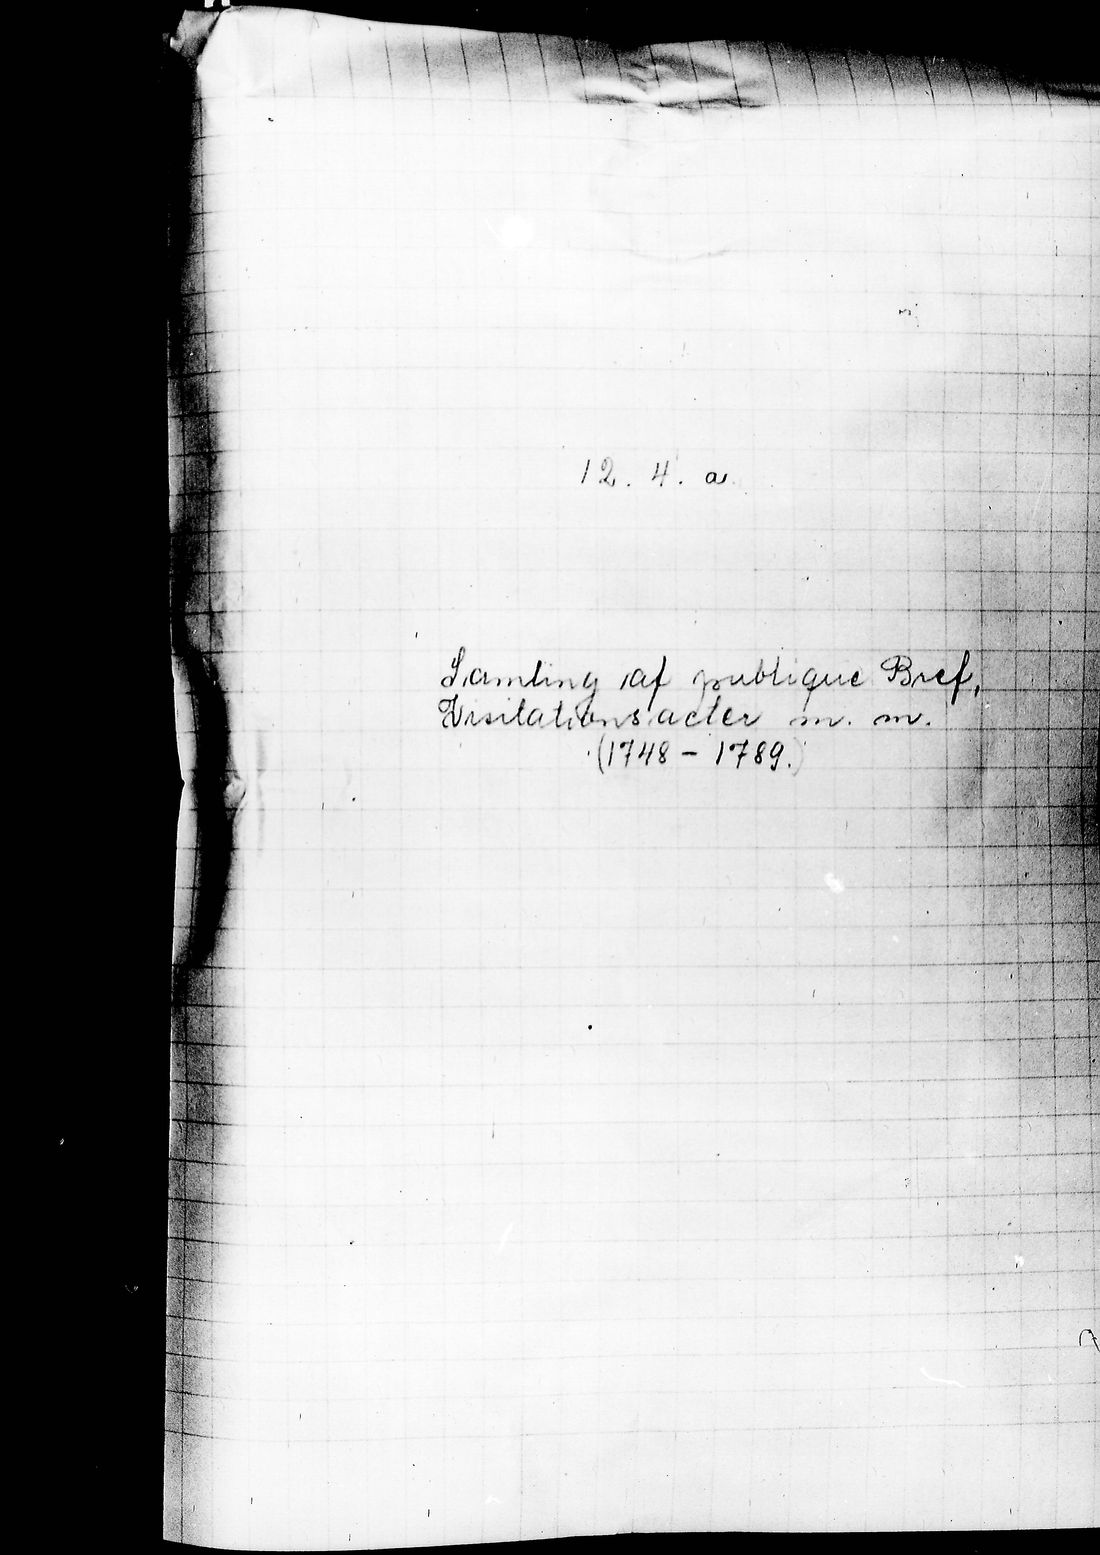 12. 4. a.
Samling af publique Bref,
Visitations acter m. m.
(1748 - 1789.)